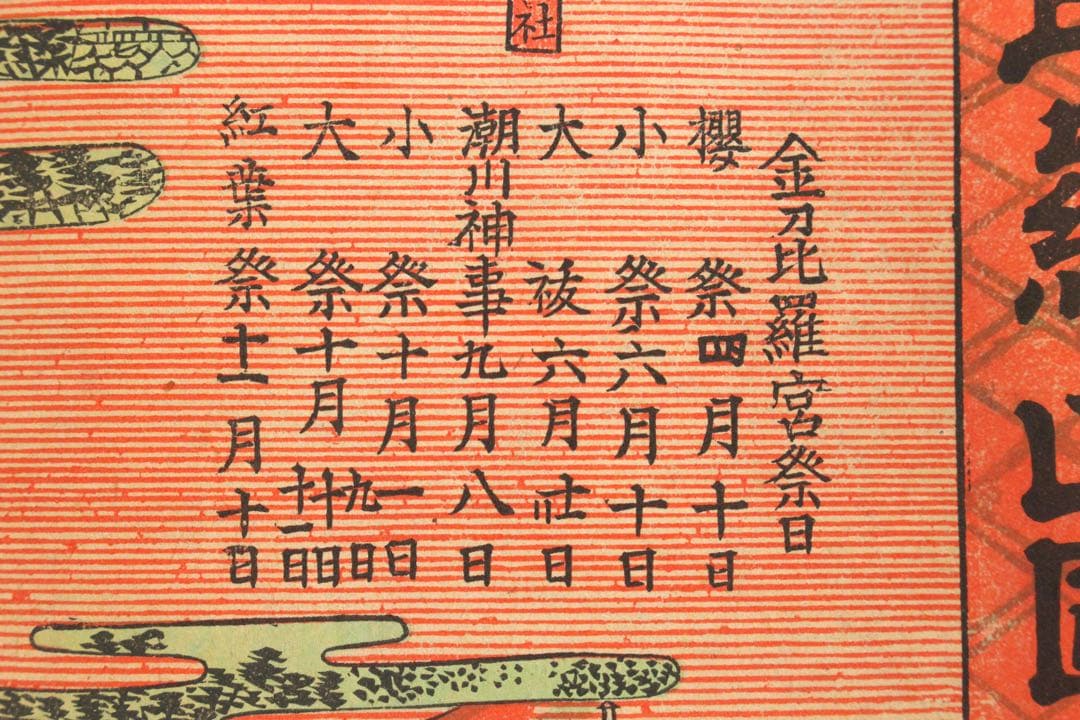 金刀比羅宮祭日
櫻祭四月十日
小祭六月十日
大祓六月卅日
潮川神事九月八日
小祭十月一日
大祭十月九日十日十一日
紅葉祭十一月十日
社